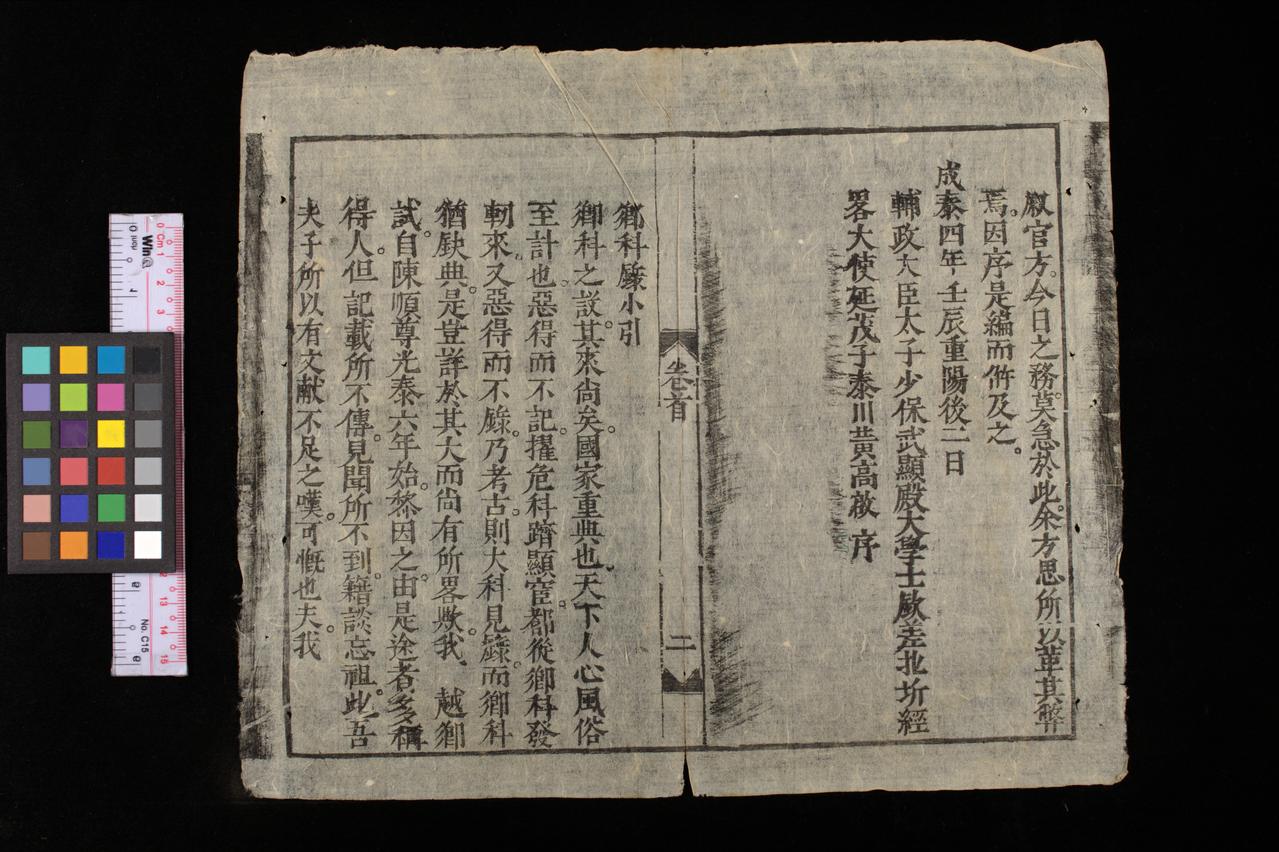 厰官方。今日之務。莫急於此。余方思所以革其弊
焉。因序是編而俻及之。
成泰四年壬辰重陽後二日
輔政大臣太子少保武顯殿大學士欽差北圻經
畧大使延茂子泰川黄高啟序
卷首
二
鄉科錄小引
鄉科之説。其來尚矣。國家重典也。天下人心風俗
至計也。惡得而不記。擢危科躋顯宦。都從鄉科發
軔來。又惡得而不錄。乃考古。則大科見錄。而鄉科
猶缺典。是豈詳於其大而尚有所畧歟。我 越鄉
試。自陳順尊光泰六年始。黎因之。由是途者多稱
得人。但記載所不傳。見聞所不到。籍談忘祖。此吾
夫子所以有文献不足之嘆。可慨也夫。我
Win@
inch
Cm
0
1
2
3
4
12
13
14
15
No. C15